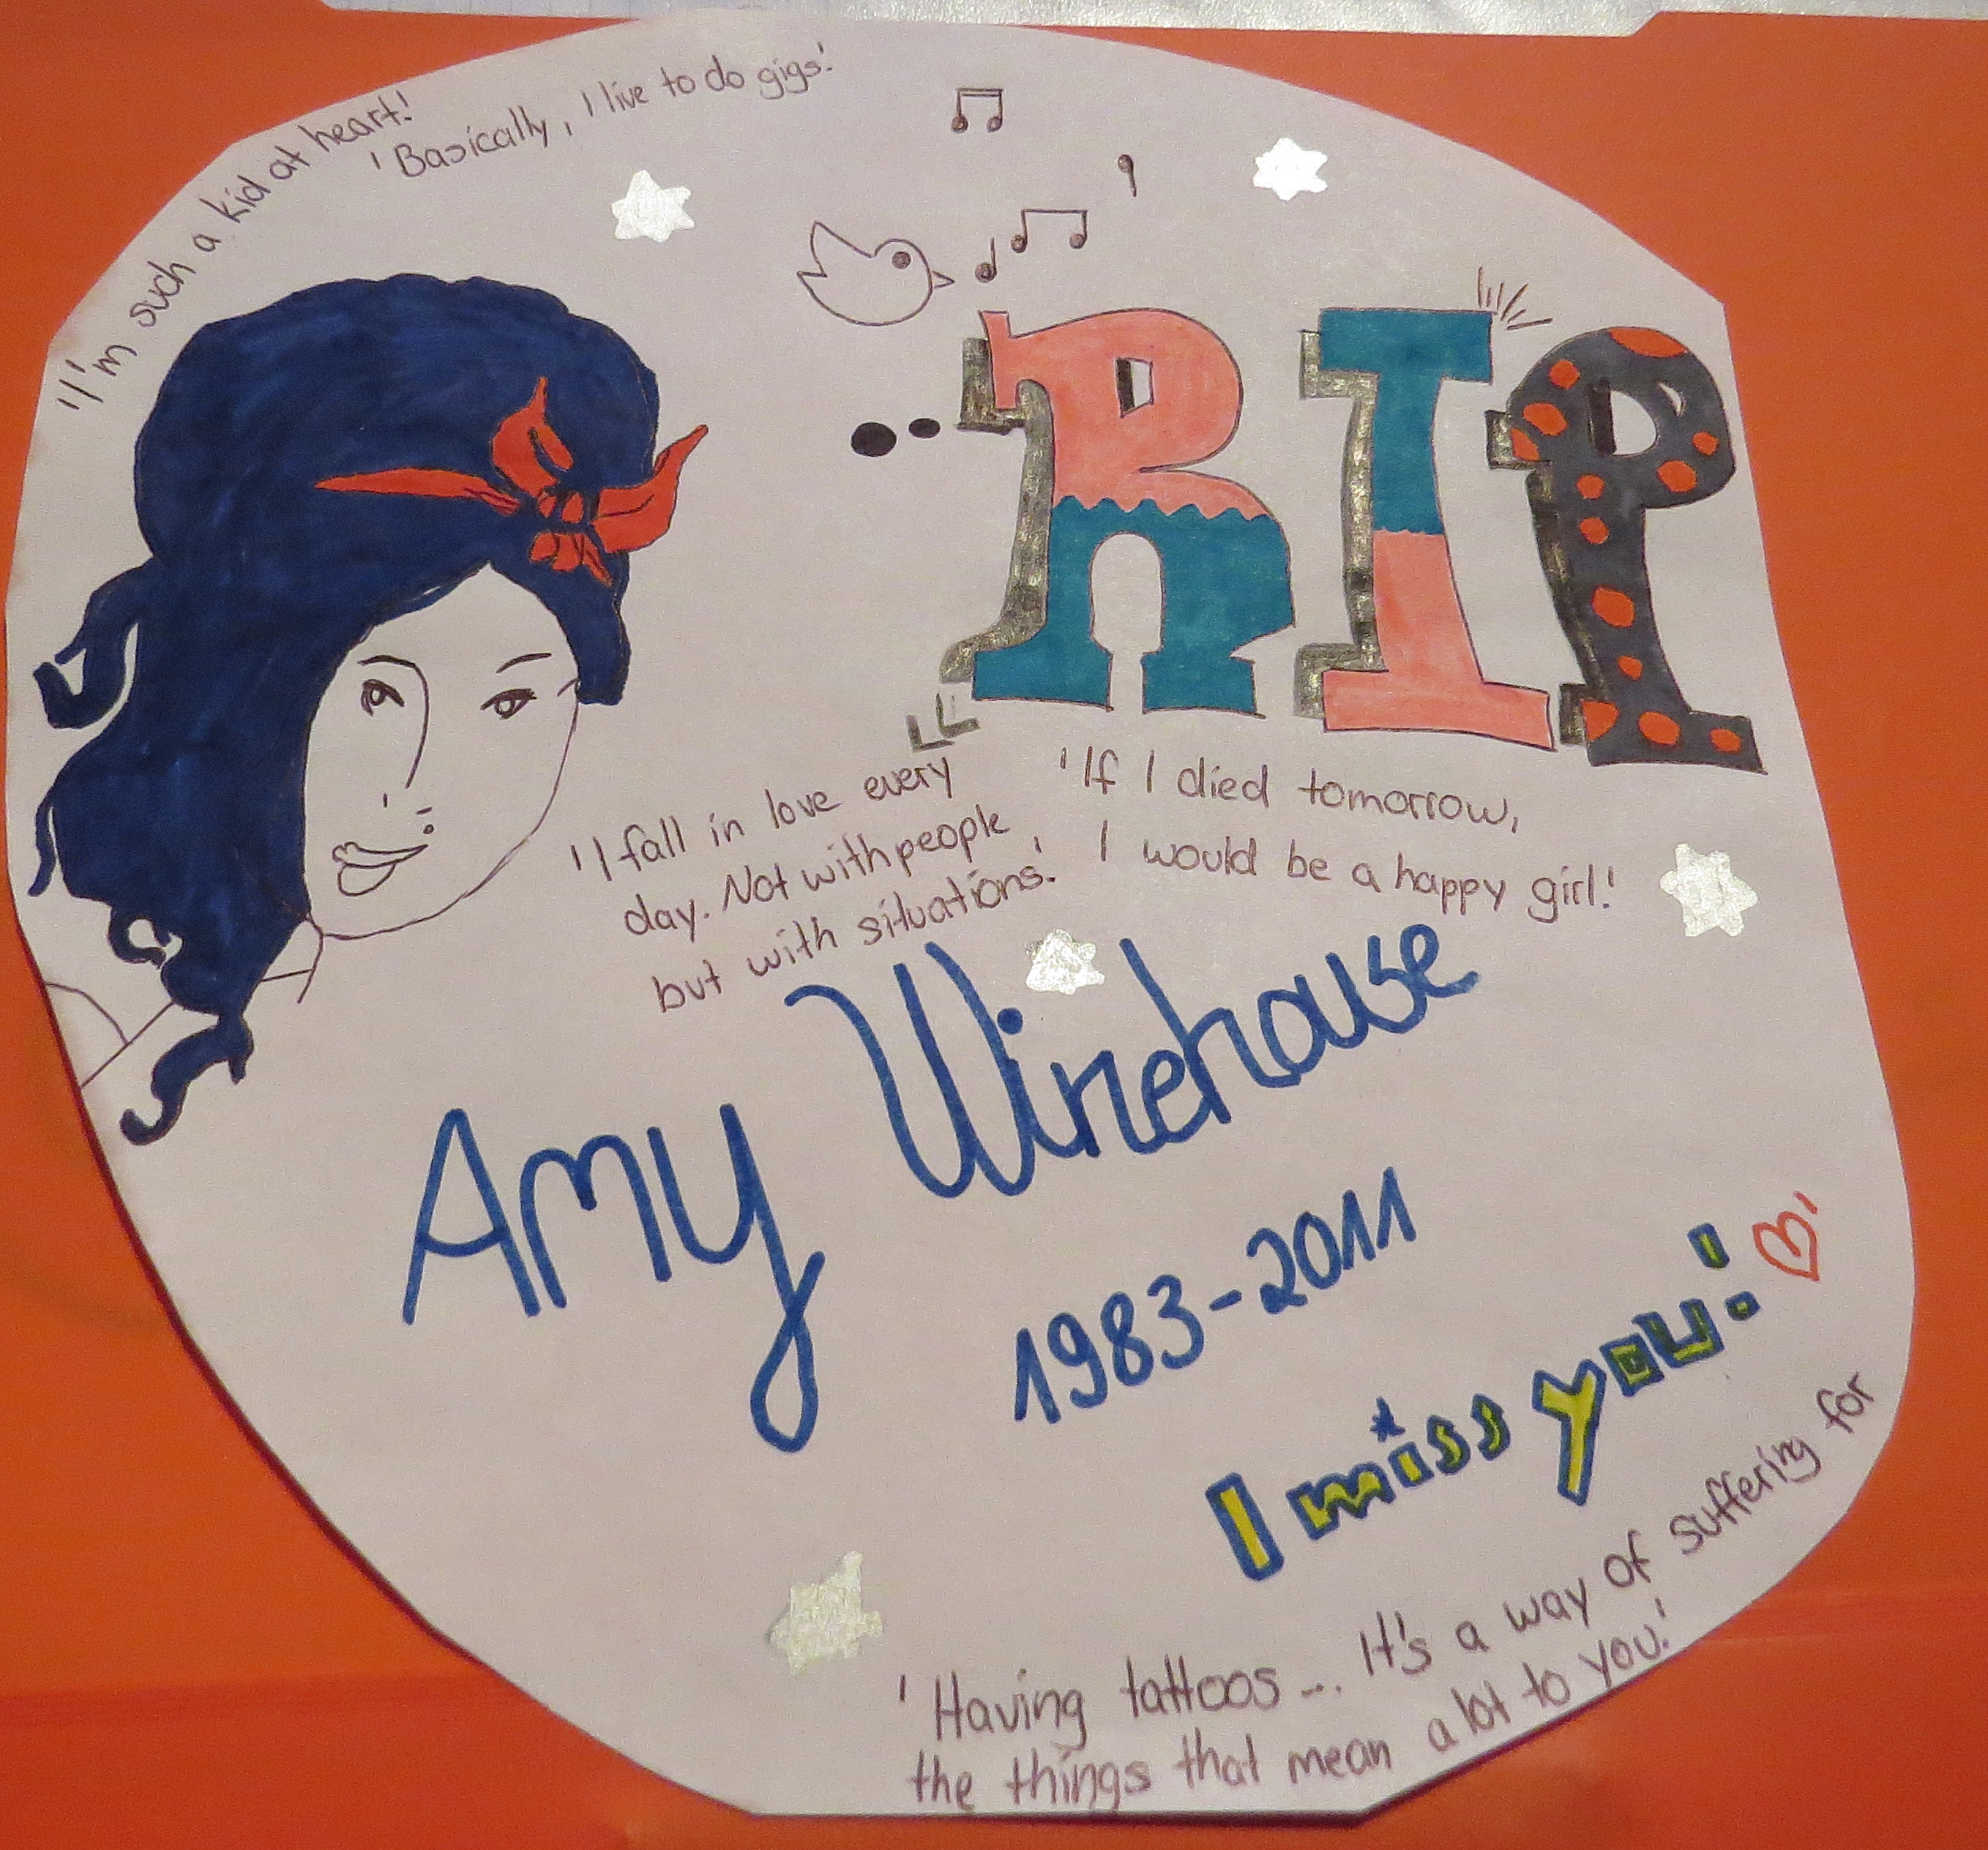 'I'm such a kid at heart!
'Basically, I live to do gigs.'
RIP
'I fall in love every
day. Not with people,
but with situations.'
'If I died tomorrow,
I would be a happy girl.'
Amy Winehouse
1983-2011
I miss you!
'Having tattoos... It's a way of suffering for
the things that mean a lot to you.'